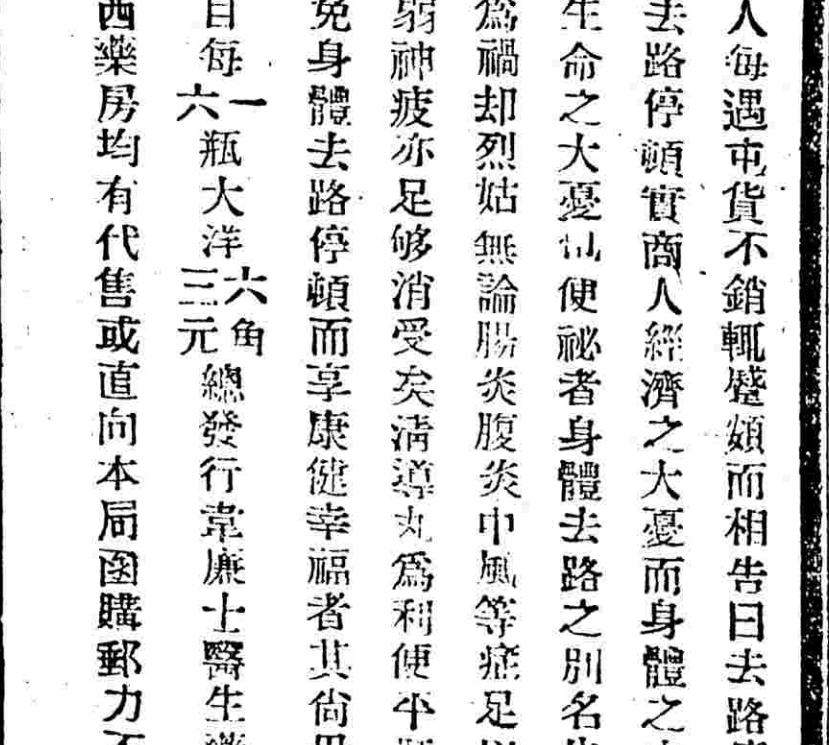 人每遇屯貨不銷輒蹙頞而相告曰去路
去路停頓實商人經濟之大憂而身體之
生命之大憂也便祕者身體去路之別名
爲禍却烈姑無論腸炎腹炎中風等症足
弱神疲亦足够消受矣淸導丸爲利便平
免身體去路停頓而享康健幸福者其尙
目每一六瓶大洋六角三元總發行韋廉士醫生藥
西藥房均有代售或直向本局函購郵力不